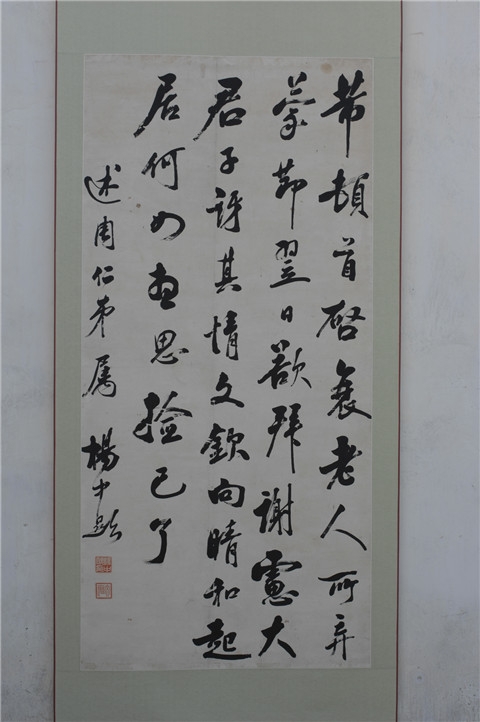 芾頓首啓衰老人所弃
蒙節翌日欲拜謝憲大
君子訝其情文欽向晴和起
居何如思撿已了
述周仁弟屬 楊中